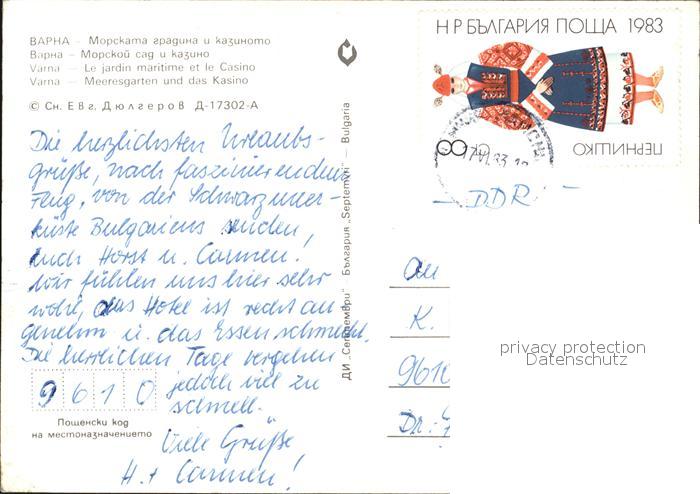 ВАРНА – Морската градина и казиното
Варна – Морской сад и казино
Varna – Le jardin maritime et le Casino
Varna – Meeresgarten und das Kasino
© Сн. Евг. Дюлгеров Д-17302-А
Die herzlichsten Urlaubs-
grüße, nach faszinierendem
Flug, von der Schwarzmeer-
küste Bulgariens senden,
Euch Horst u. Carmen!
Wir fühlen uns hier sehr
wohl, das Hotel ist recht an-
genehm u. das Essen schmeckt.
Die herrlichen Tage vergehen
jedoch viel zu
schnell.
Viele Grüße
H. + Carmen!
9610
Пощенски код
на местоназначението
ДИ „Септември" България „Septemvri" – Bulgaria
НР БЪЛГАРИЯ ПОЩА 1983
8 ст
ПЕРНИШКО
– DDR –
An
K.
9610
Dr.
privacy protection
Datenschutz